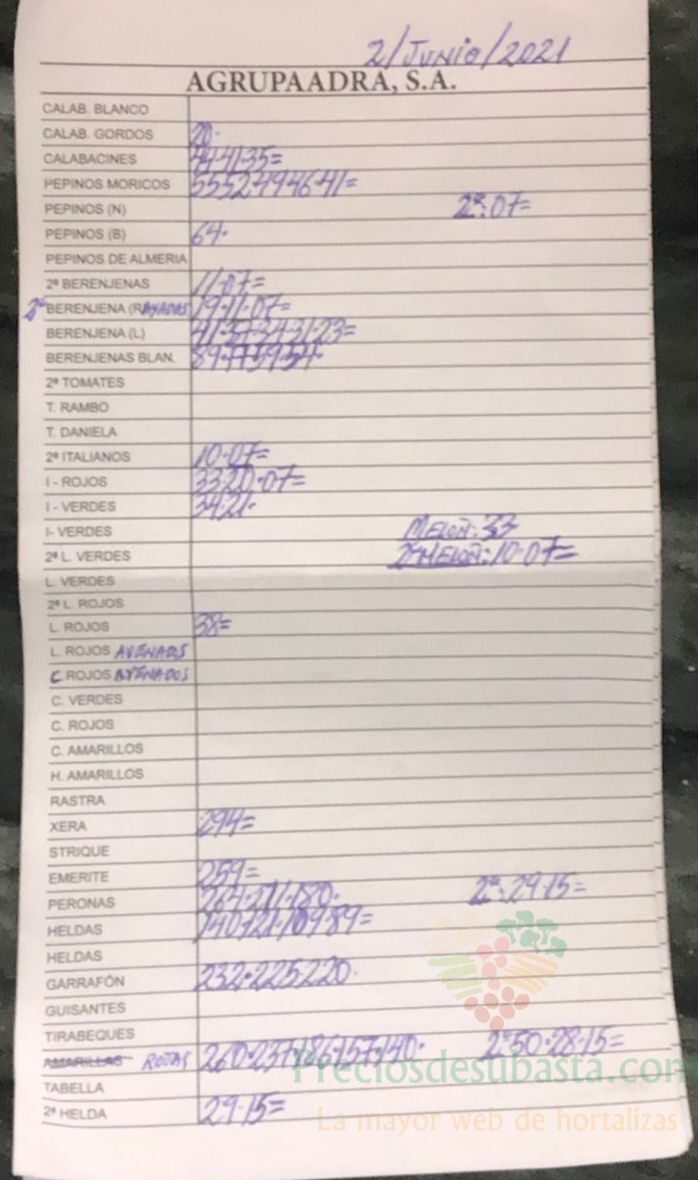 2/JUNIO/2021
AGRUPAADRA, S.A.
CALAB. BLANCO
CALAB. GORDOS 20.
CALABACINES 44·41·35=
PEPINOS MORICOS 55·52·49·46·41=
PEPINOS (N) 2ª:07=
PEPINOS (B) 64.
PEPINOS DE ALMERIA
2ª BERENJENAS 11·07=
2ª BERENJENA (RAYADAS 19·11·07=
BERENJENA (L) 41·37·34·31·23=
BERENJENAS BLAN. 89·77·59·54·
2ª TOMATES
T. RAMBO
T. DANIELA
2ª ITALIANOS 10·07=
I - ROJOS 33·20·07=
I - VERDES 34·21·
I- VERDES MELON: 33
2ª L. VERDES 2ª MELON: 10·07=
L. VERDES
2ª L. ROJOS
L. ROJOS 38=
L. ROJOS AVENADOS
C ROJOS AVENADOS
C. VERDES
C. ROJOS
C. AMARILLOS
H. AMARILLOS
RASTRA
XERA 294=
STRIQUE
EMERITE 259=
PERONAS 264·211·180· 2ª:29·15=
HELDAS 140·121·109·89=
HELDAS
GARRAFÓN 232·225·220·
GUISANTES
TIRABEQUES
AMARILLAS ROJAS 260·237·186·157·140· 2ª 50·28·15=
Preciosdesubasta.com
TABELLA
2ª HELDA 29·15=
La mayor web de hortalizas